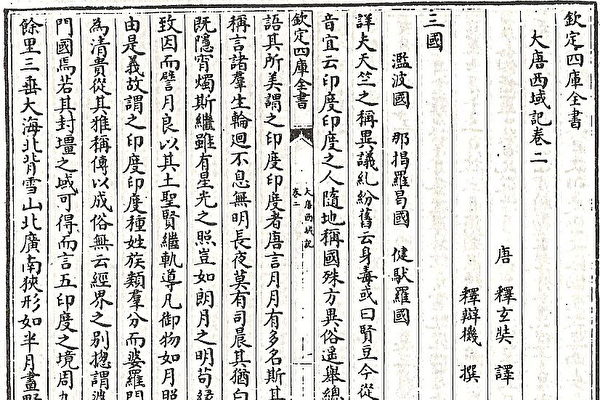 欽定四庫全書
大唐西域記卷二
唐 釋玄奘 譯
釋辯機 撰
三國
濫波國 那揭羅曷國 健馱羅國
詳夫天竺之稱異議糺紛舊云身毒或曰賢豆今從
音宜云印度印度之人隨地稱國殊方異俗遥舉總
欽定四庫全書
大唐西域記
卷二
一
語其所美謂之印度印度者唐言月月有多名斯其
稱言諸羣生輪迴不息無明長夜莫有司晨其猶白
既隱宵燭斯繼雖有星光之照豈如朗月之明茍
致因而譬月良以其土聖賢繼軌導凡御物如月照
由是義故謂之印度印度種姓族類羣分而婆羅門
為清貴從其雅稱傳以成俗無云經界之别揔謂婆
門國焉若其封壃之域可得而言五印度之境周九
餘里三垂大海北背雪山北廣南狹形如半月畫野